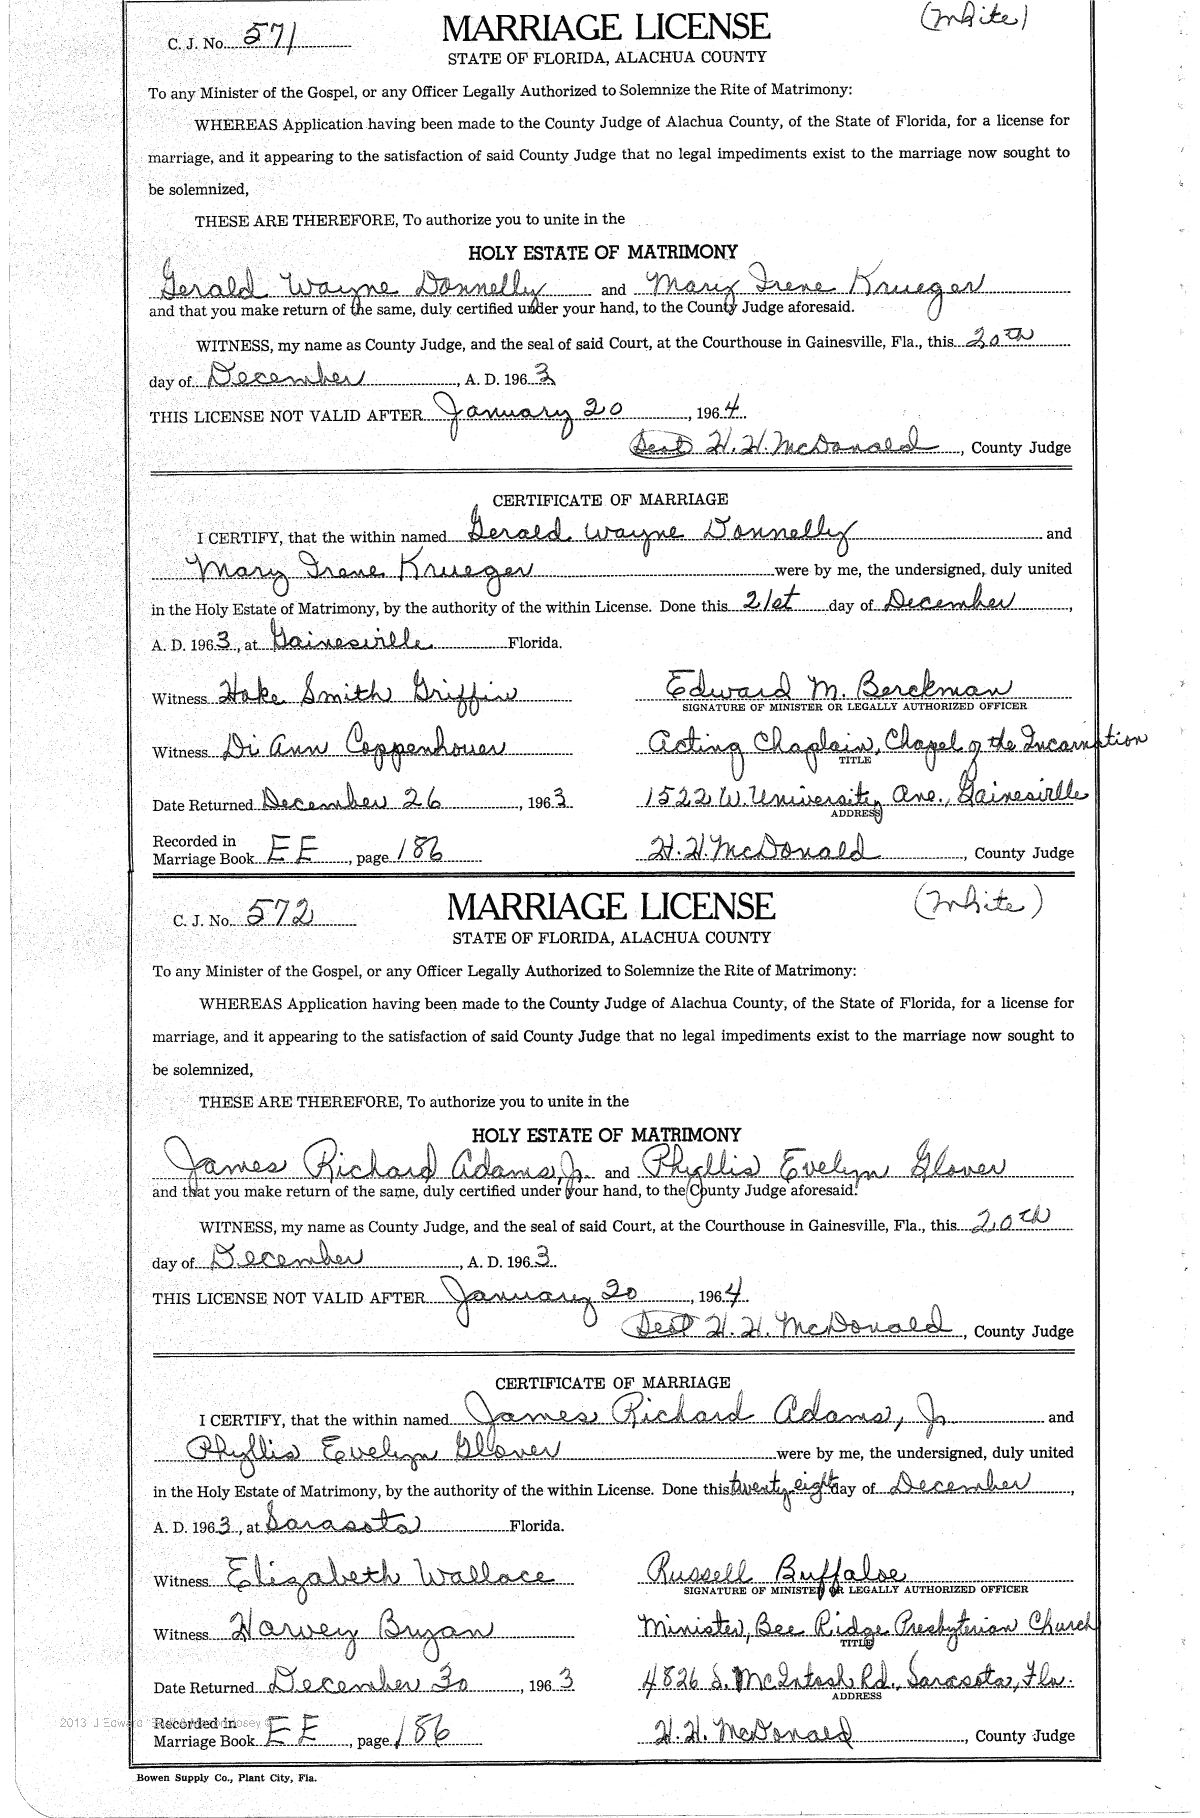 (White)
C. J. No. 571
MARRIAGE LICENSE
STATE OF FLORIDA, ALACHUA COUNTY
To any Minister of the Gospel, or any Officer Legally Authorized to Solemnize the Rite of Matrimony:
WHEREAS Application having been made to the County Judge of Alachua County, of the State of Florida, for a license for
marriage, and it appearing to the satisfaction of said County Judge that no legal impediments exist to the marriage now sought to
be solemnized,
THESE ARE THEREFORE, To authorize you to unite in the
HOLY ESTATE OF MATRIMONY
Gerald Wayne Donnelly and Mary Irene Krueger
and that you make return of the same, duly certified under your hand, to the County Judge aforesaid.
WITNESS, my name as County Judge, and the seal of said Court, at the Courthouse in Gainesville, Fla., this 20th
day of December, A. D. 1963
THIS LICENSE NOT VALID AFTER January 20, 1964
(Seal) H. H. McDonald, County Judge
CERTIFICATE OF MARRIAGE
I CERTIFY, that the within named Gerald Wayne Donnelly and
Mary Irene Krueger were by me, the undersigned, duly united
in the Holy Estate of Matrimony, by the authority of the within License. Done this 21st day of December,
A. D. 1963, at Gainesville Florida.
Witness Hoke Smith Griffin Edward M. Berckman
SIGNATURE OF MINISTER OR LEGALLY AUTHORIZED OFFICER
Witness Di Ann Coppenhouer Acting Chaplain, Chapel of the Incarnation
TITLE
Date Returned December 26, 1963 1522 W. University Ave., Gainesville
ADDRESS
Recorded in
Marriage Book EE, page 186 H. H. McDonald, County Judge
(White)
C. J. No. 572
MARRIAGE LICENSE
STATE OF FLORIDA, ALACHUA COUNTY
To any Minister of the Gospel, or any Officer Legally Authorized to Solemnize the Rite of Matrimony:
WHEREAS Application having been made to the County Judge of Alachua County, of the State of Florida, for a license for
marriage, and it appearing to the satisfaction of said County Judge that no legal impediments exist to the marriage now sought to
be solemnized,
THESE ARE THEREFORE, To authorize you to unite in the
HOLY ESTATE OF MATRIMONY
James Richard Adams, Jr. and Phyllis Evelyn Glover
and that you make return of the same, duly certified under your hand, to the County Judge aforesaid.
WITNESS, my name as County Judge, and the seal of said Court, at the Courthouse in Gainesville, Fla., this 20th
day of December, A. D. 1963.
THIS LICENSE NOT VALID AFTER January 20, 1964
(Seal) H. H. McDonald, County Judge
CERTIFICATE OF MARRIAGE
I CERTIFY, that the within named James Richard Adams, Jr. and
Phyllis Evelyn Glover were by me, the undersigned, duly united
in the Holy Estate of Matrimony, by the authority of the within License. Done this twenty eight day of December,
A. D. 1963, at Sarasota Florida.
Witness Elizabeth Wallace Russell Buffaloe
SIGNATURE OF MINISTER OR LEGALLY AUTHORIZED OFFICER
Witness Harvey Bryan Minister, Bee Ridge Presbyterian Church
TITLE
Date Returned December 30, 1963 4826 S. McIntosh Rd., Sarasota, Fla.
ADDRESS
2013 J Edward
Recorded in
Marriage Book EE, page 186 H. H. McDonald, County Judge
Bowen Supply Co., Plant City, Fla.